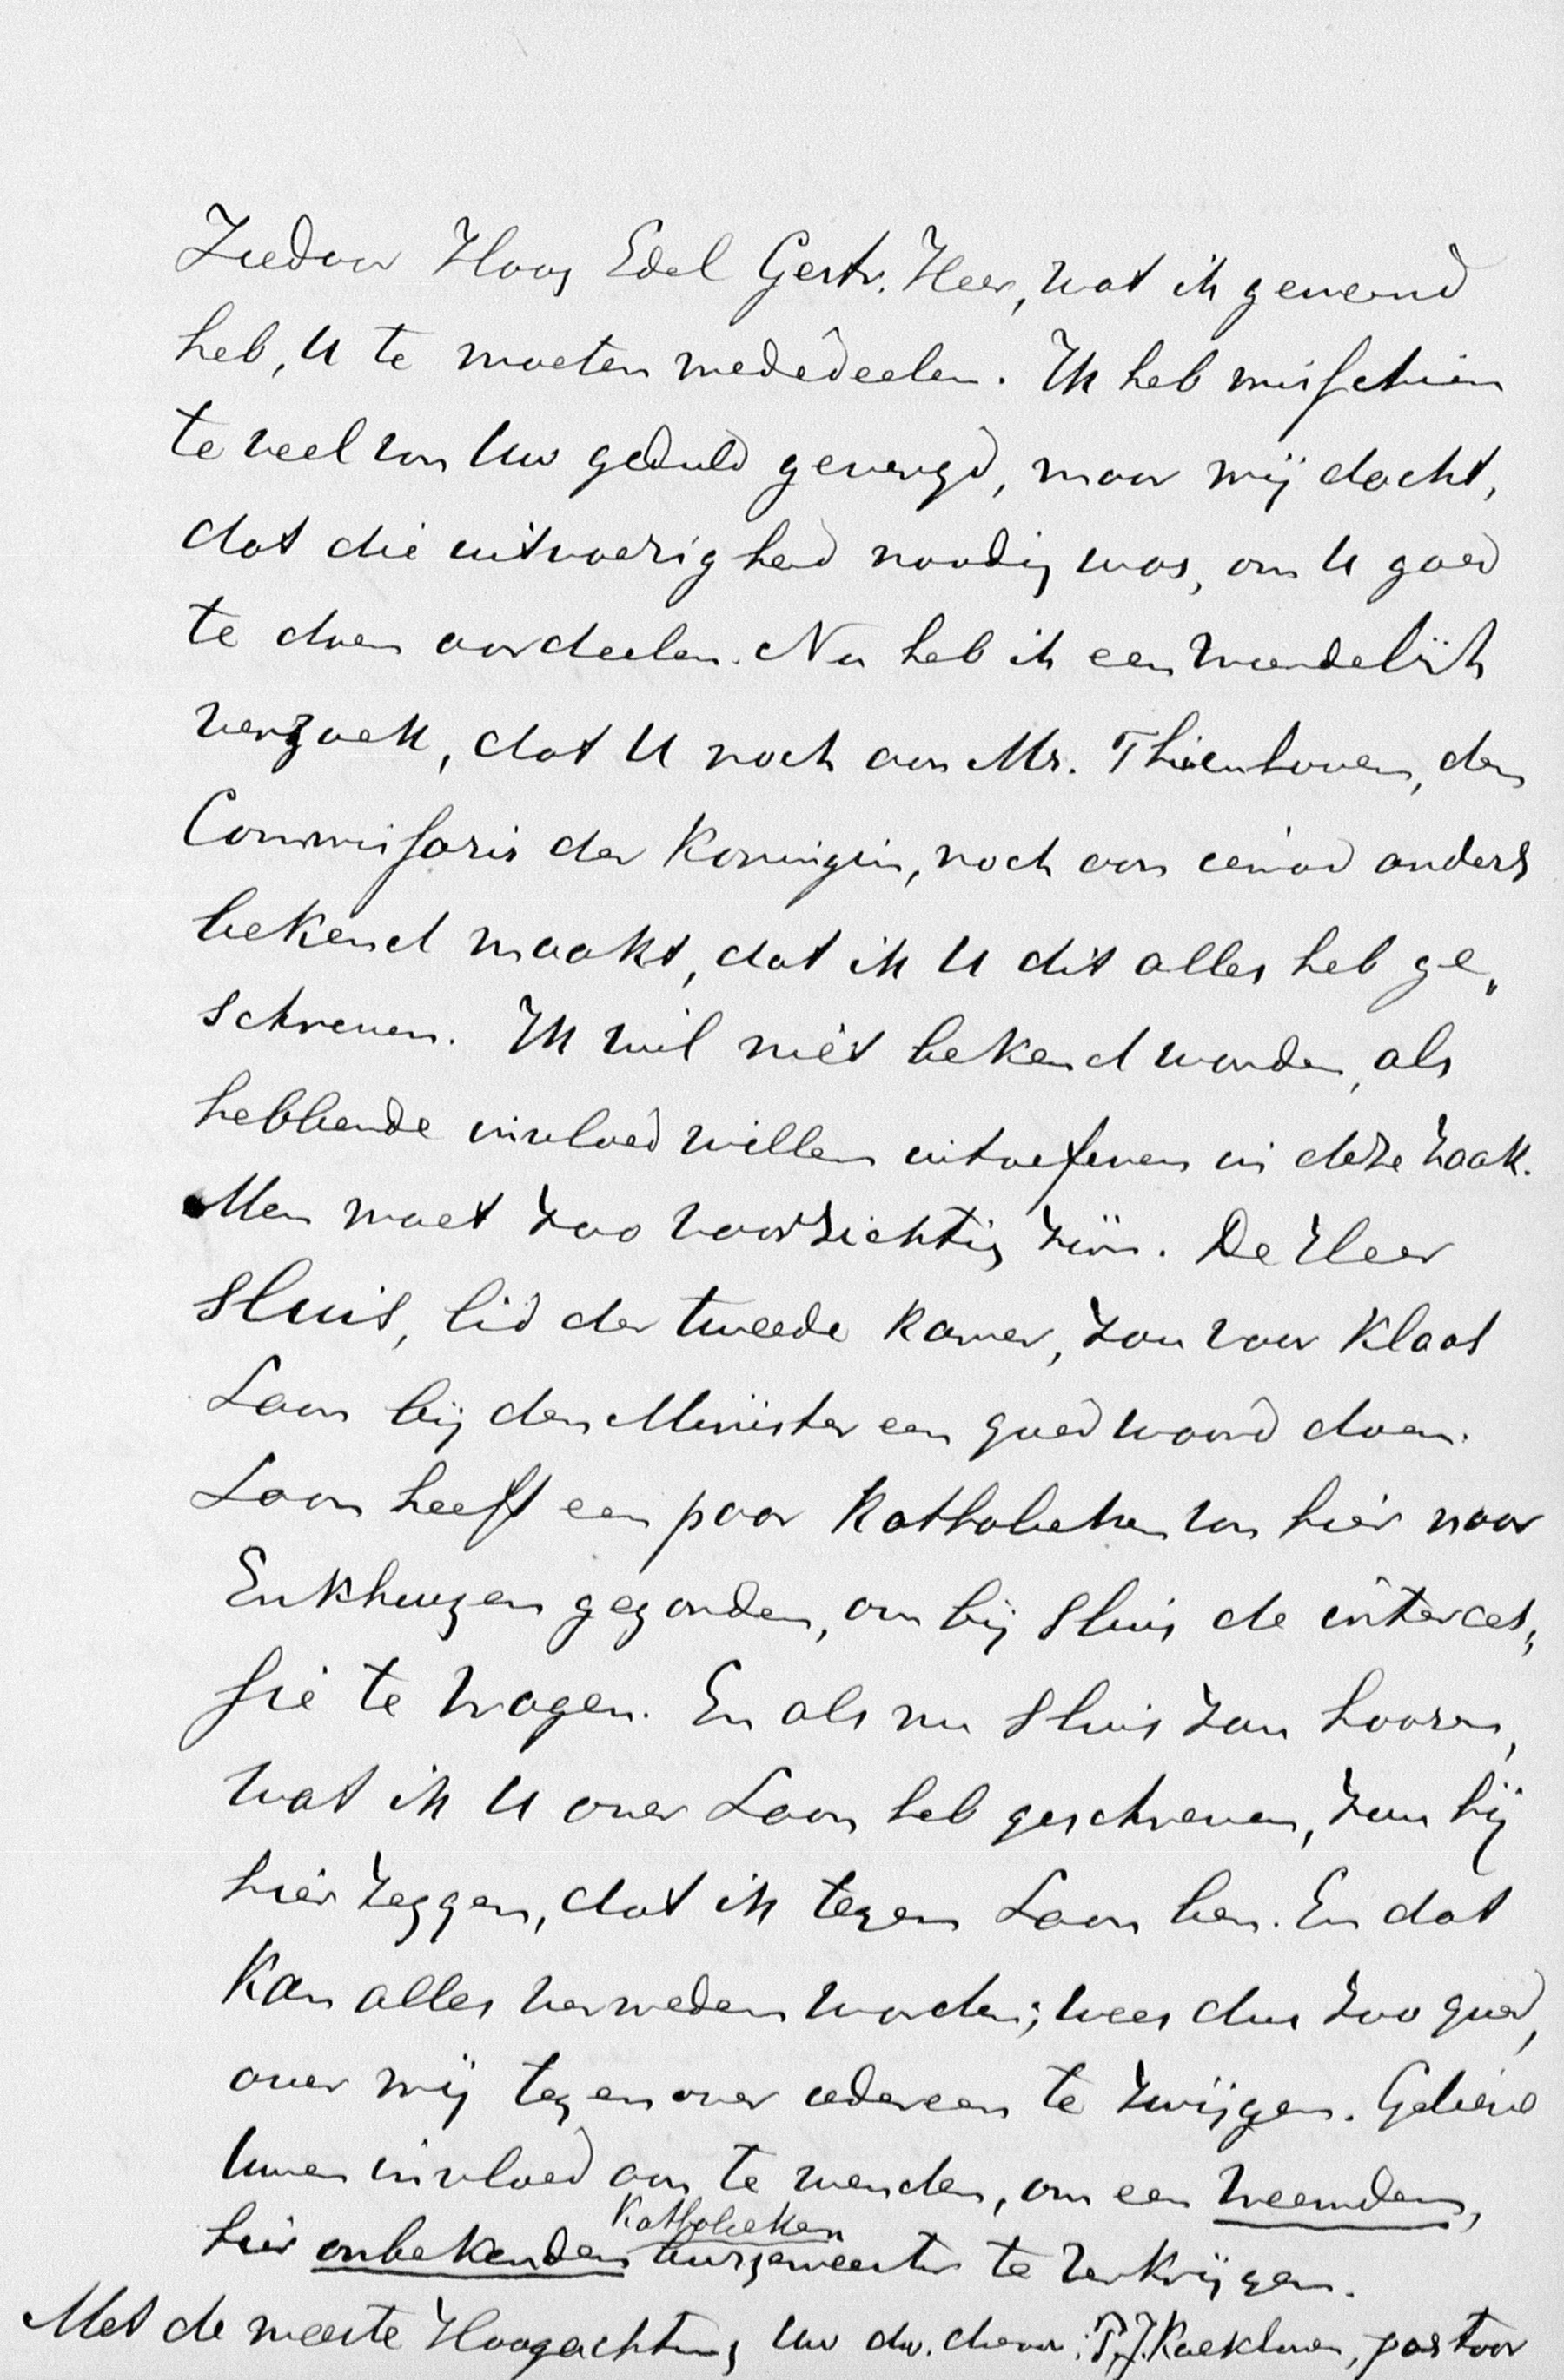 Ziedaar Hoog Edel Gestr. Heer, wat ik gemeend
heb, U te moeten mededeelen. Ik heb misschien
te veel van Uw geduld gevergd, maar mij dacht,
dat die uitvoerigheid noodig was, om U goed
te doen oordeelen. Nu heb ik een vriendelijk
verzoek, dat U noch aan Mr. Thienhoven, den
Commissaris der Koningin, noch aan iemand anders
bekend maakt, dat ik U dit alles heb ge„
schreven. Ik wil niet bekend worden, als
hebbende invloed willen uitoefenen in deze zaak.
Men moet zoo voorzichtig zijn. De Heer
Sluis, lid der tweede Kamer, zou voor Klaas
Laan bij den Minister een goed woord doen.
Laan heeft een paar Katholieken van hier naar
Enkhuyzen gezonden, om bij Sluis de interces„
sie te vragen. En als nu Sluis zou hooren,
wat ik U over Laan heb geschreven, zou hij
hier zeggen, dat ik tegen Laan ben. En dat
kan alles vermeden worden; wees dus zoo goed,
over mij tegenover iedereen te zwijgen. Gelieve
Uwen invloed aan te wenden, om een vreemden,
hier onbekenden Katholieken burgemeester te verkrijgen.
Met de meeste Hoogachting Uw dw. dienaar: P.J. , pastoor